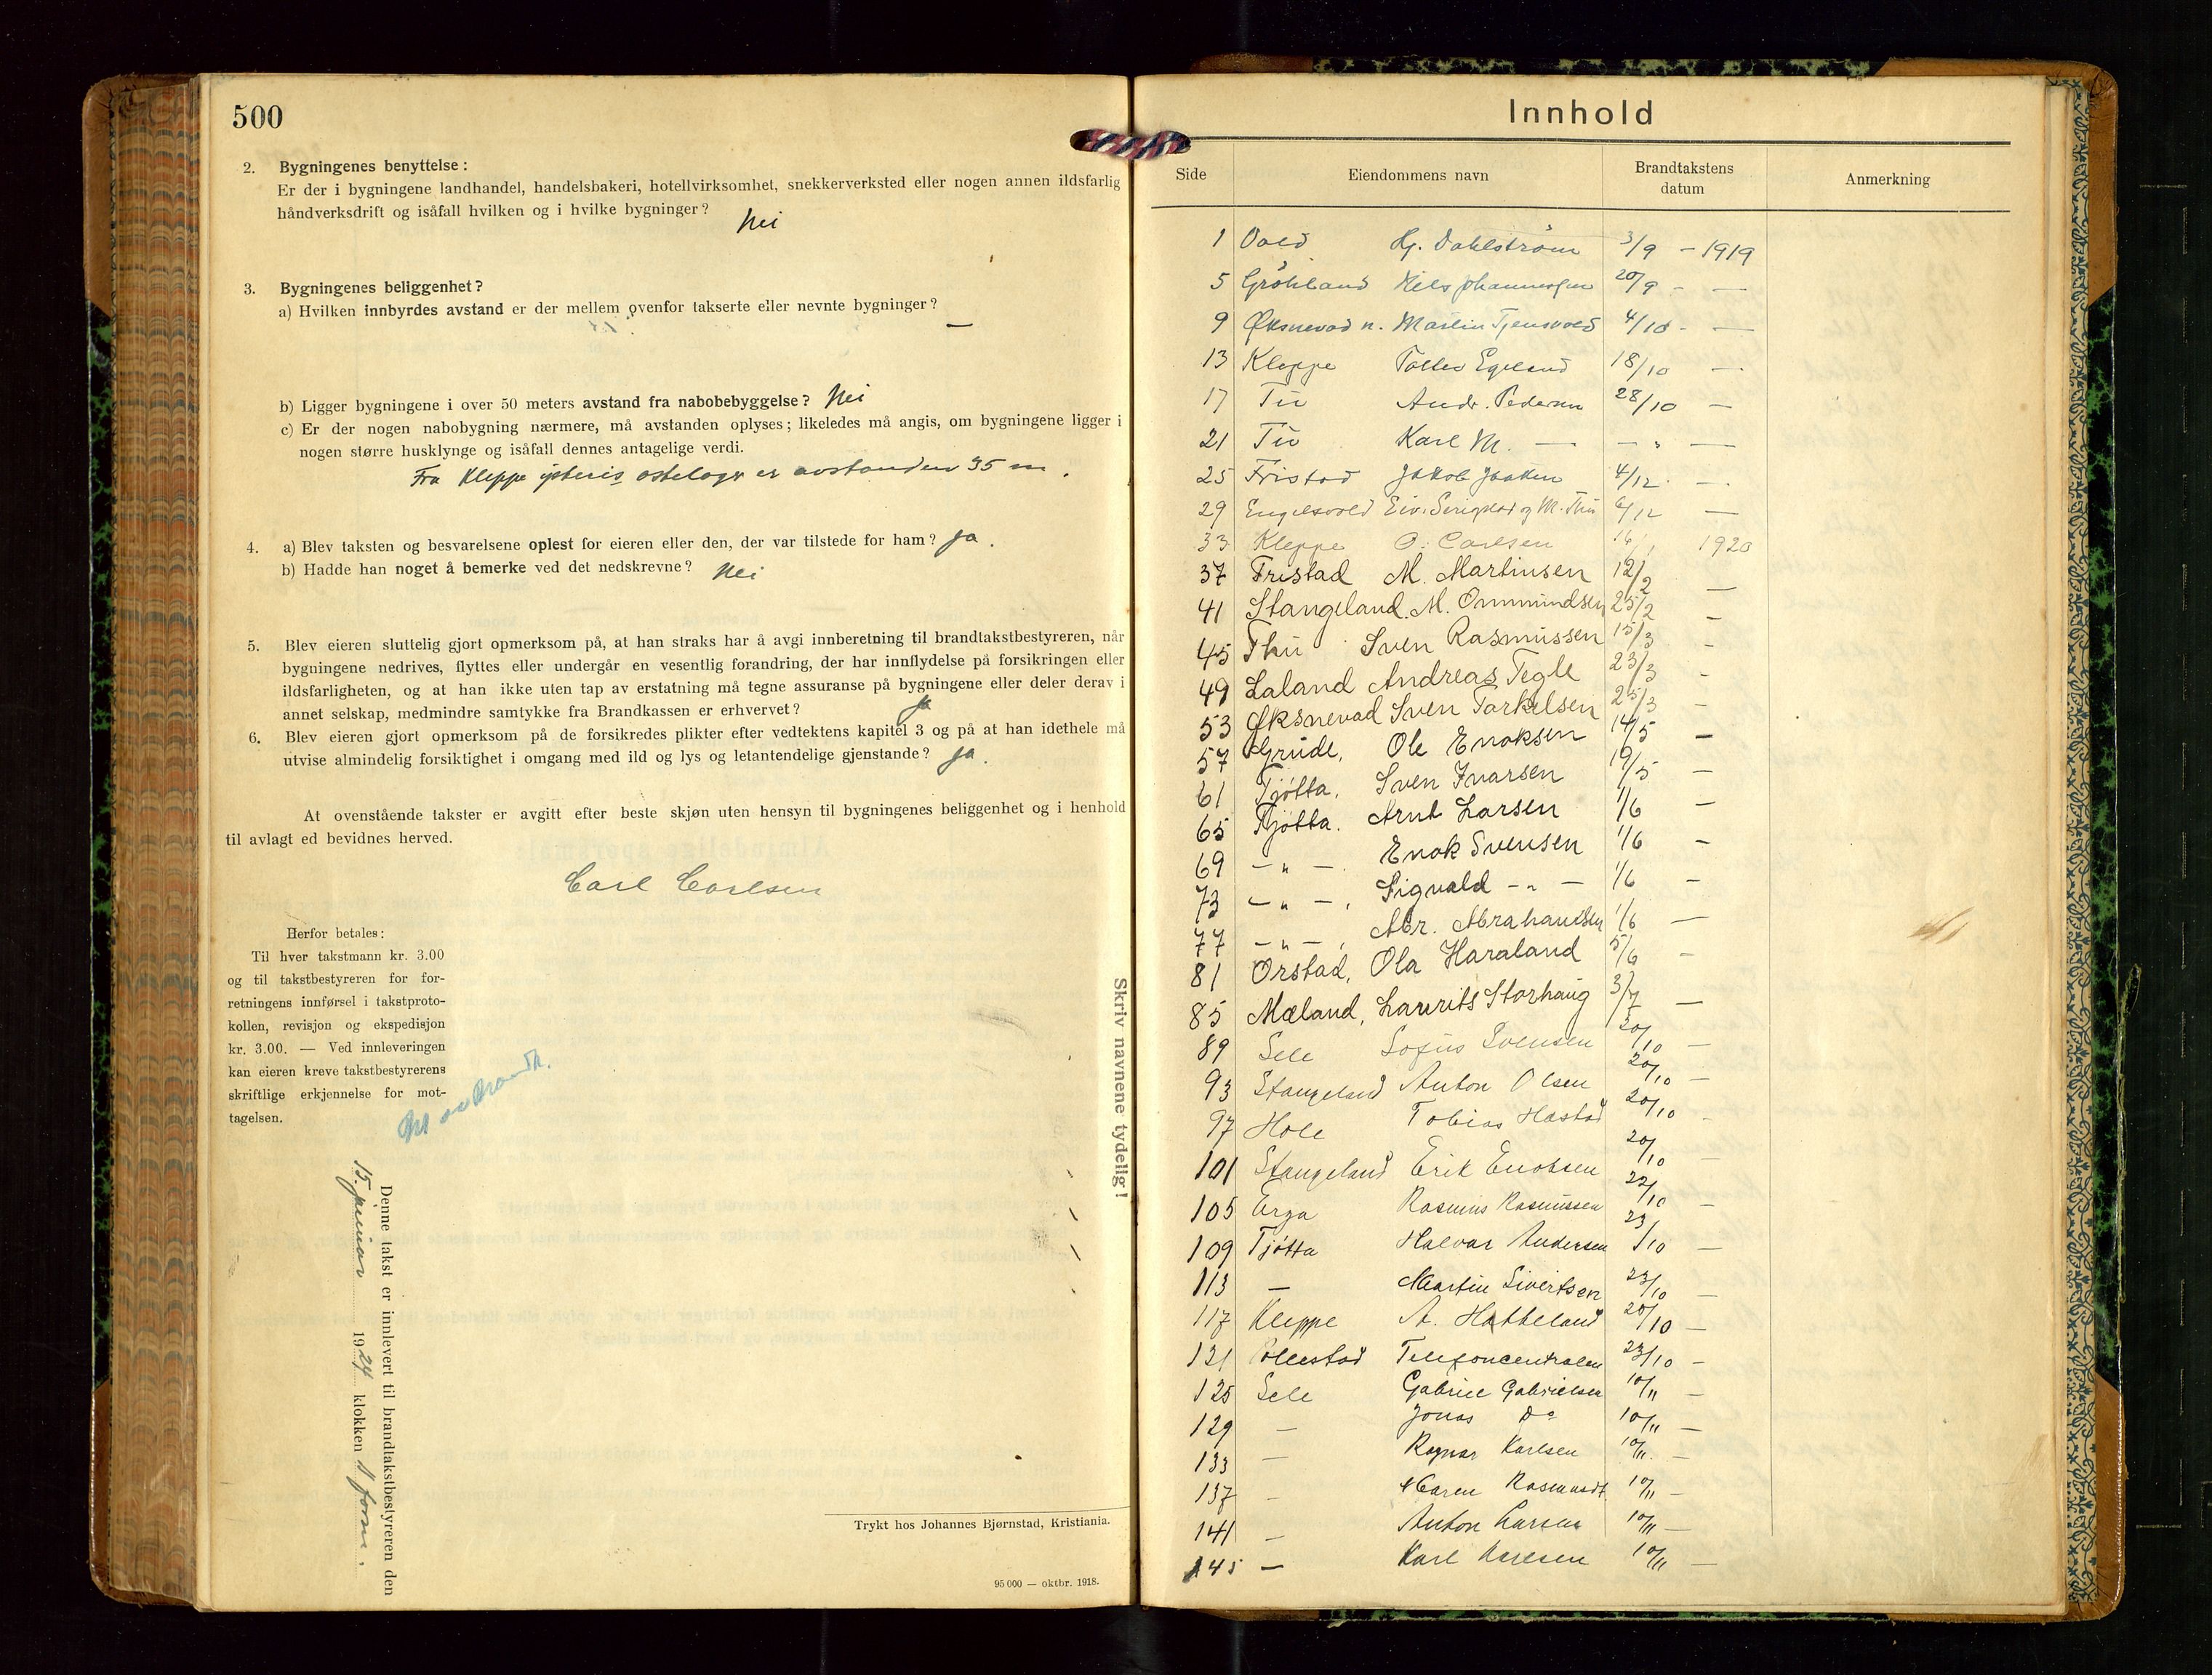 500
2. Bygningenes benyttelse:
Er der i bygningene landhandel, handelsbakeri, hotellvirksomhet, snekkerverksted eller nogen annen ildsfarlig
håndverksdrift og isåfall hvilken og i hvilke bygninger? Nei
3. Bygningenes beliggenhet?
a) Hvilken innbyrdes avstand er der mellem ovenfor takserte eller nevnte bygninger? —
b) Ligger bygningene i over 50 meters avstand fra nabobebyggelse? Nei
c) Er der nogen nabobygning nærmere, må avstanden oplyses; likeledes må angis, om bygningene ligger i
nogen større husklynge og isåfall dennes antagelige verdi.
Fra Kleppe er avstanden 35 m.
4. a) Blev taksten og besvarelsene oplest for eieren eller den, der var tilstede for ham? Ja.
b) Hadde han noget å bemerke ved det nedskrevne? Nei
5. Blev eieren sluttelig gjort opmerksom på, at han straks har å avgi innberetning til brandtakstbestyreren, når
bygningene nedrives, flyttes eller undergår en vesentlig forandring, der har innflydelse på forsikringen eller
ildsfarligheten, og at han ikke uten tap av erstatning må tegne assuranse på bygningene eller deler derav i
annet selskap, medmindre samtykke fra Brandkassen er erhvervet? Ja
6. Blev eieren gjort opmerksom på de forsikredes plikter efter vedtektens kapitel 3 og på at han idethele må
utvise almindelig forsiktighet i omgang med ild og lys og letantendelige gjenstande? Ja.
At ovenstående takster er avgitt efter beste skjøn uten hensyn til bygningenes beliggenhet og i henhold
til avlagt ed bevidnes herved.
Carl Carlsen
Herfor betales:
Til hver takstmann kr. 3.00
og til takstbestyreren for for-
retningens innførsel i takstproto-
kollen, revisjon og ekspedisjon
kr. 3.00. — Ved innleveringen
kan eieren kreve takstbestyrerens
skriftlige erkjennelse for mot-
tagelsen.
Denne takst er innlevert til brandtakstbestyreren den
15. januar 1924 klokken form.
Skriv navnene tydelig!
Trykt hos Johannes Bjørnstad, Kristiania.
95 000 — oktbr. 1918.
Innhold
Side Eiendommens navn Brandtakstens datum Anmerkning
1 Hj. Dahlström 3/9 - 1919
5 Gröhland Nils Johannesen 20/9 - —
9 Øksnevad n. Martin Tjensvold 4/10 - —
13 Kleppe Tollev Egeland 18/10 —
17 Tu Andr. Pedersen 28/10 —
21 Tu Karl M. — — " —
25 Fristad Jakob 4/12. —
29 Engelsvold Eiv. og M. Thu 6/12 —
33 Kleppe O. Carlsen 16/1 1920
37 Fristad M. Martinsen 12/2 —
41 Stangeland. M. Ommundsen 25/2 -
45 Thu Sven Rasmussen 15/3 -
49 Laland Andreas Tegle 23/3 -
53 Øksnevad Sven Torkelsen 25/3 -
57 Grude, Ole Enoksen 14/5 —
61 Tjøtta, Sven Ivarsen 19/5 —
65 Tjøtta. Arnt Larsen 1/6 —
69 — " — Enok Svensen 1/6 —
73 — " — , Sigvald - " - 1/6 —
77 — " — , Abr. Abrahamsen 1/6 —
81 Orstad, Ola Haraland 5/6 -
85 Mæland, Laurits Storhaug 3/7 —
89 Sele Sofus Svensen 20/10 —
93 Stangeland Anton Olsen 20/10 —
97 Hole Tobias Hastad 20/10 —
101 Stangeland Erik Enoksen 20/10 —
105 Erga Rasmus Rasmussen 22/10 —
109 Tjøtta Halvar Andersen 23/10 —
113 — Martin Sivertsen 23/10 —
117 Kleppe A. Hatteland 20/10 —
121 Pollestad Telefoncentralen 23/10 —
125 Sele Gabriel Gabrielsen 10/11 —
129 — Jonas Do 10/11 —
133 — Ragnar Karlsen 10/11. —
137 — Maren Rasmusdt. 10/11 —
141 — Anton Larsen 10/11 —
145 — Karl Karlsen 10/11 —